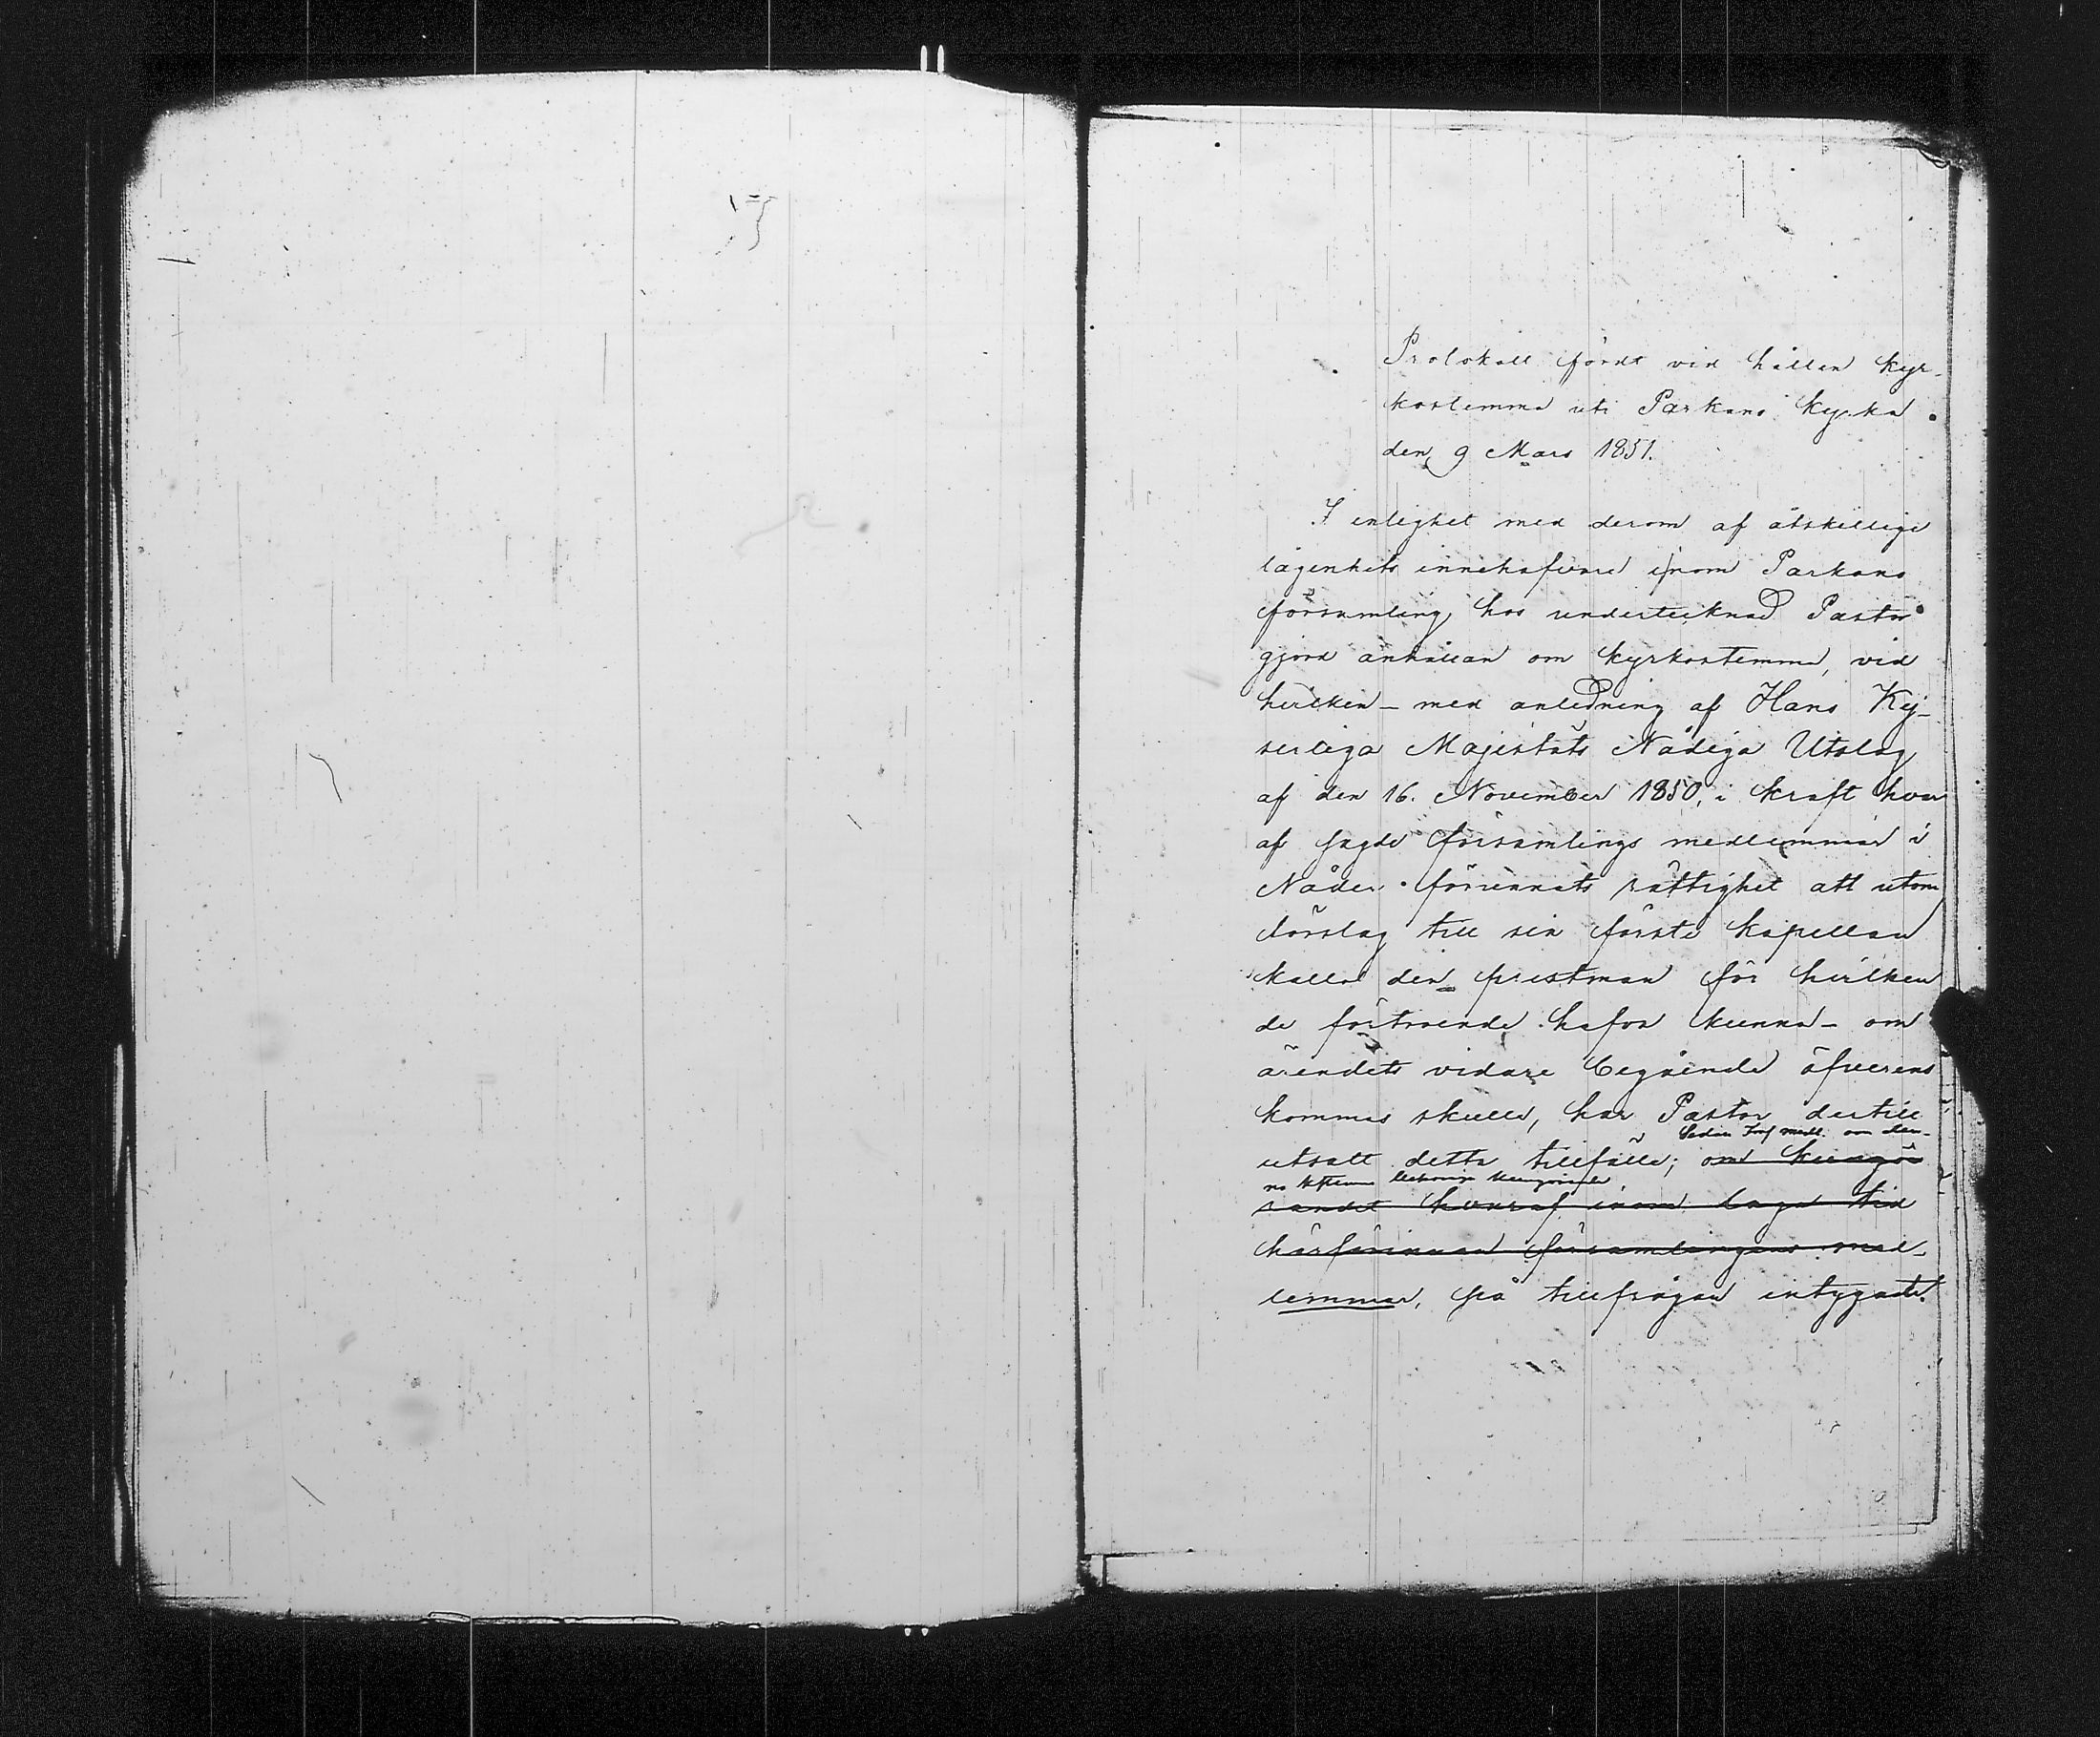 Protokoll fördt vid hållen kyr-
kostemma uti Parkano kyrka
den 9 Mars 1851.
I enlighet med derom af åtskillige
lägenhets innehafvare inom Parkano
församling hos undertecknad Pastor
gjord anhållan om kyrkostemma, vid
hvilken - med anledning af Hans Kej-
serliga Majestäts Nådiga Utslag
af den 16. November 1850, i kraft hvar
af sagde församlings medlemmar i
Nåder förunnats rättighet att utom
förslag till sin förste kapellan
kalla den prestman för hvilken
de förtroende hafva kunna - om
ärendets vidare begående öfverens
kommas skulle, har Pastor dertill
Sedan Förs medl. om den-
utsatt detta tillfälle; om kungö
na behörigen
randet hvaraf inom laga tid
härförinnan församlingens med-
lemmar, på tillfrågan intygade.